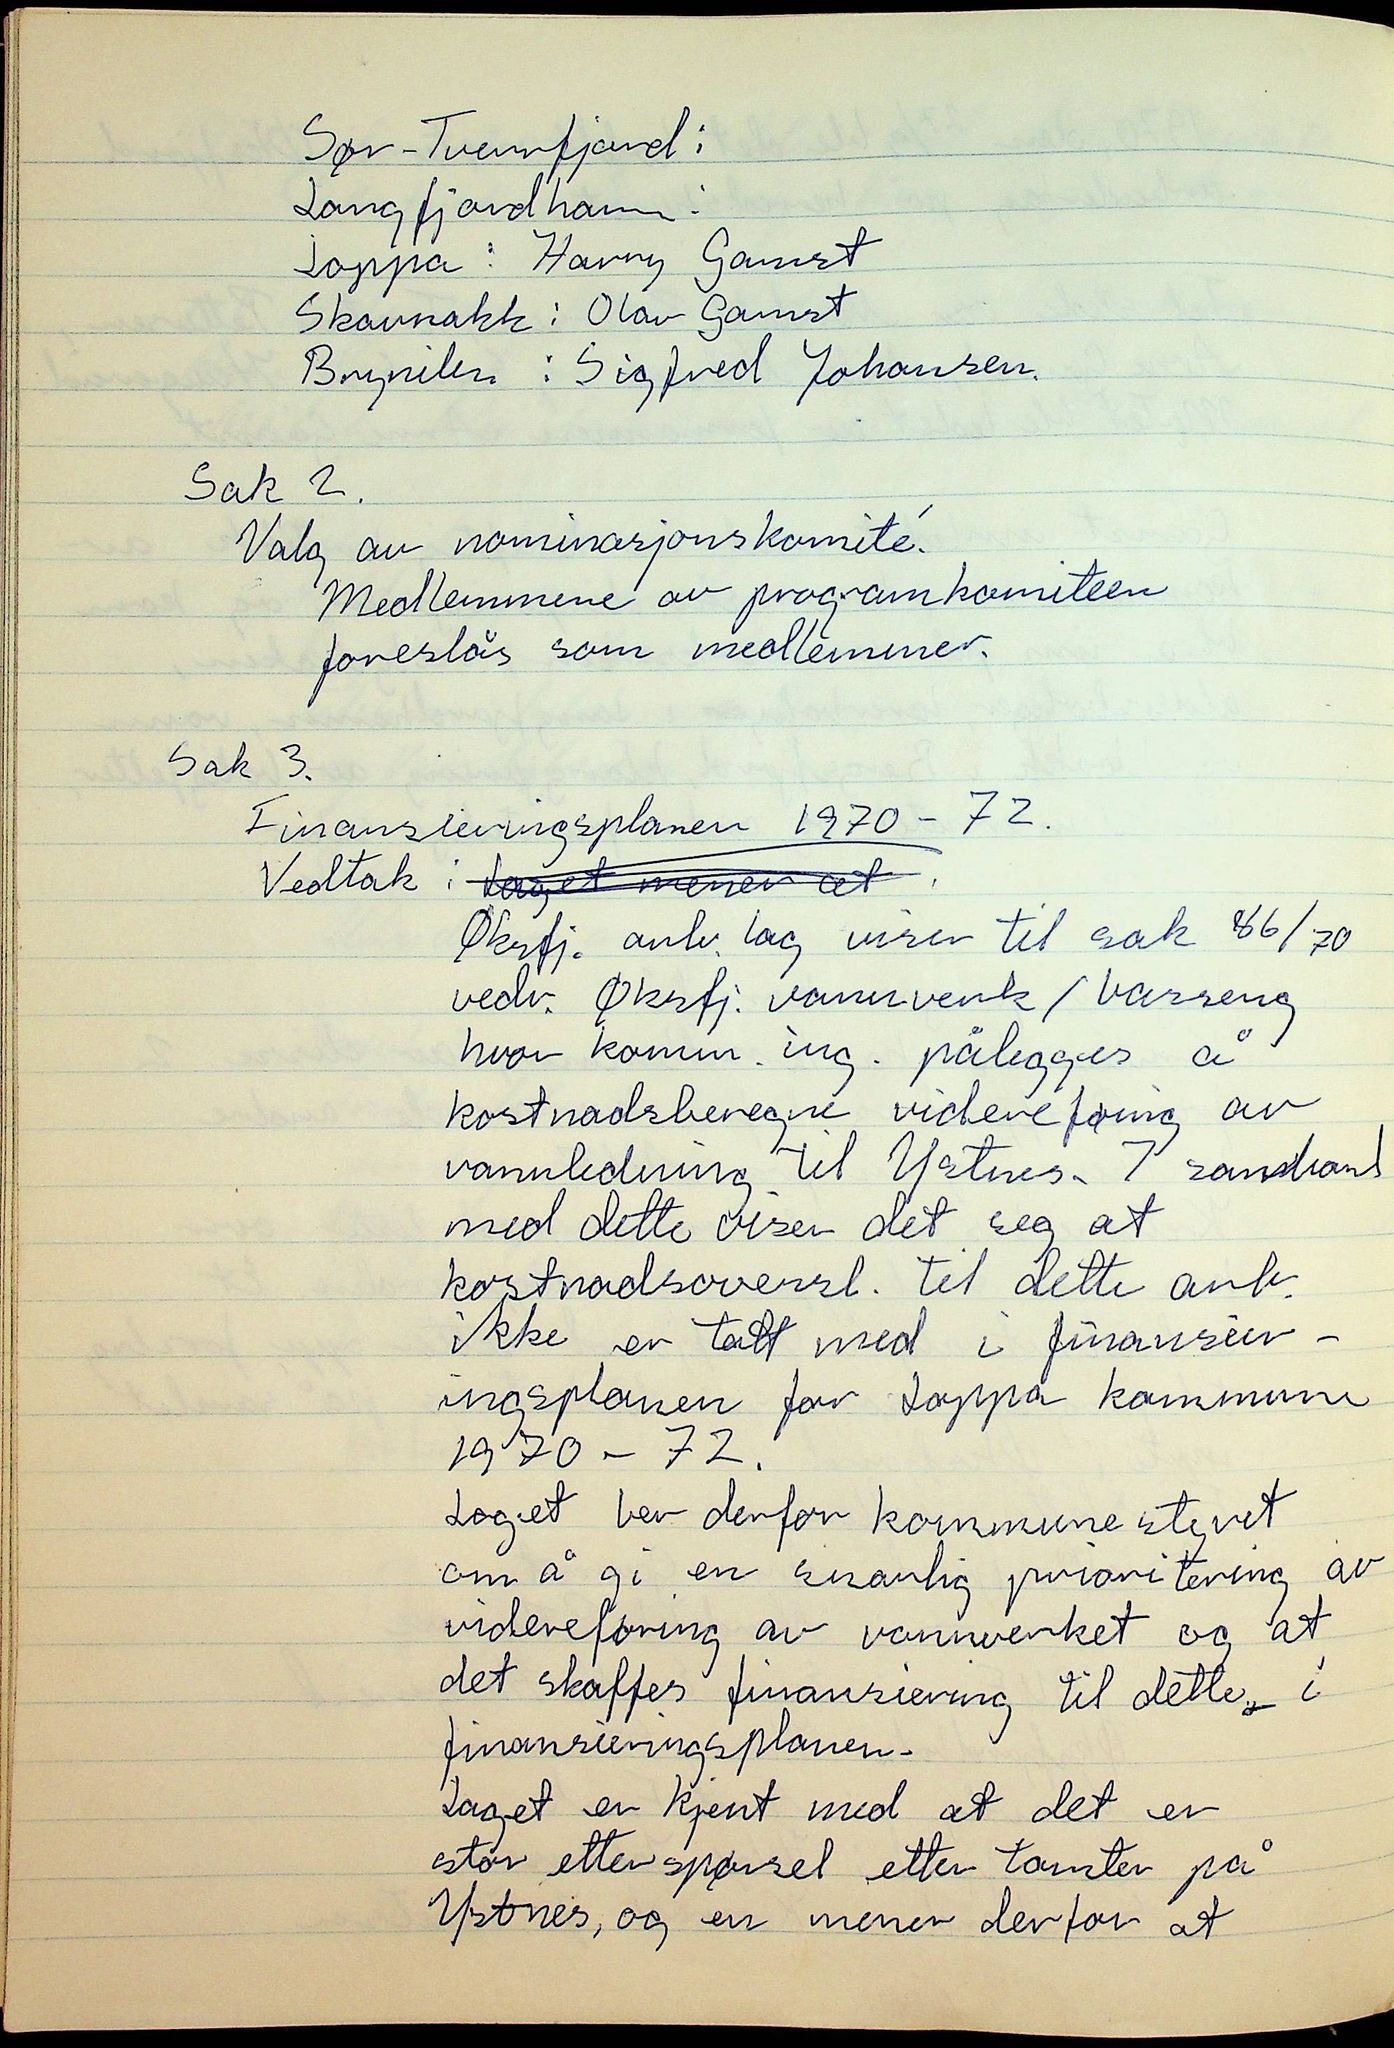 Sør-Tverrfjord:
Langfjordhamn:
Loppa: Harry Gamst
Skavnakk: Olav Gamst
Brynilen: Sigfred Johansen.
Sak 2.
Valg av nominasjonskomité.
Medlemmene av programkomiteen
foreslås som medlemmer.
Sak 3.
Finansieringsplanen 1970 - 72.
Vedtak: Laget mener at.
Øksfj. arb. lag viser til sak 86/70
vedr. Øksfj. vannverk / basseng
hvor komm. ing. pålegges å
kostnadsberegne videreføring av
vannledning til Ystnes. I samband
med dette viser det seg at
kostnadsoversl. til dette arb.
ikke er tatt med i finansier-
ingsplanen for Loppa kommune
1970 - 72.
Laget ber derfor kommunestyret
om å gi en snarlig prioritering av
videreføring av vannverket og at
det skaffes finansiering til dette i
finansieringsplanen.
Laget er kjent med at det er
stor etterspørsel etter tomter på
Ystnes, og en mener derfor at